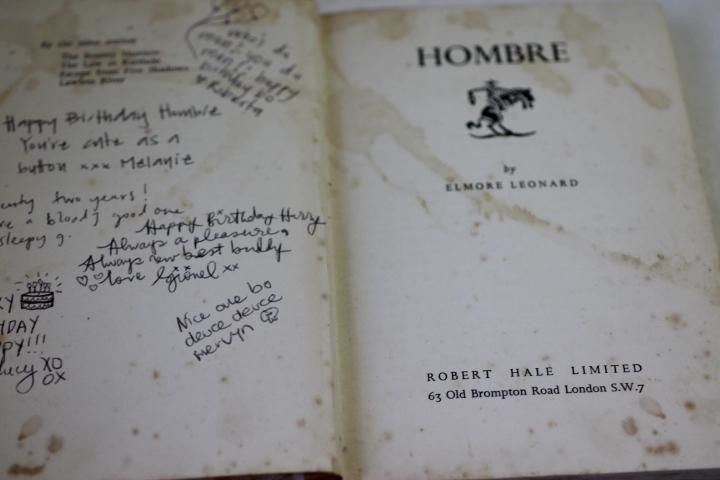 By the same author
The Bounty Hunters
The Law at Randado
Escape from Five Shadows
Lawless River
happy
Birthday Bo
♥ Roberta
Happy Birthday Hombre
You're cute as a
button xxx Melanie
two years!
a bloody good one
sleepy g.
Happy Birthday Hurry
Always a pleasure,
Always new best buddy
love xx
DAY
PY!!!
Lucy XO
OX
Nice one bo
deuce deuce
Mervyn
HOMBRE
by
ELMORE LEONARD
ROBERT HALE LIMITED
63 Old Brompton Road London S.W.7